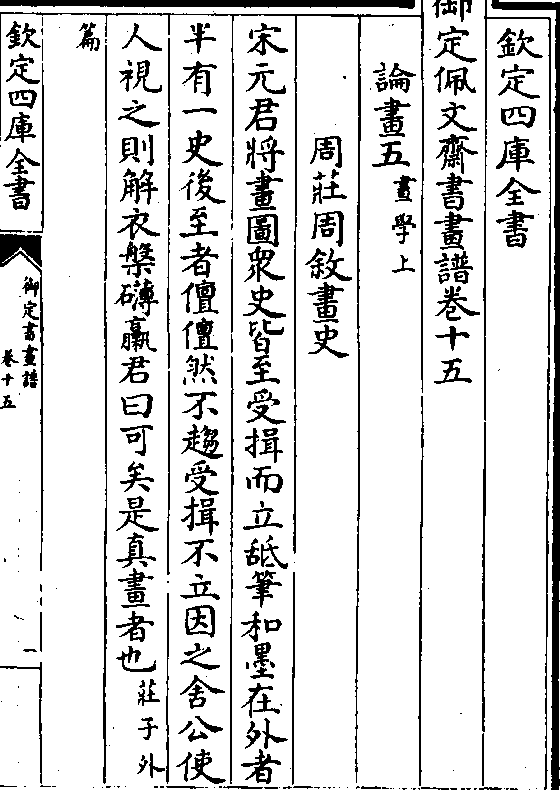 欽定四庫全書
御定佩文齋書畫譜卷十五
論畫五 畫學上
周莊周敘畫史
宋元君將畫圖衆史皆至受揖而立舐筆和墨在外者
半有一史後至者儃儃然不趨受揖不立因之舍公使
人視之則解衣槃礴臝君曰可矣是真畫者也 莊子外
篇
欽定四庫全書
御定書畫譜
卷十五
一